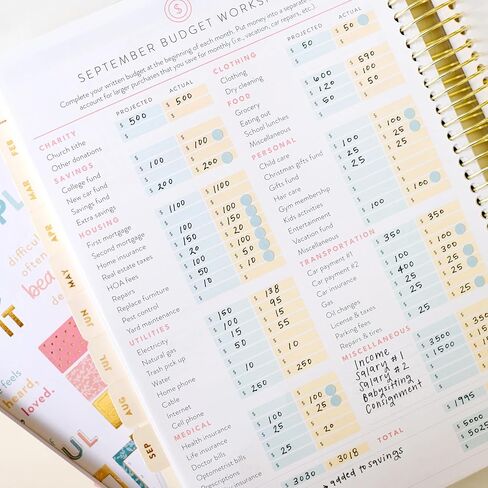 SEPTEMBER BUDGET WORKS
Complete your written budget at the beginning of each month. Put money into a separate
account for larger purchases that you save for monthly (i.e., vacation, car repairs, etc.)
PROJECTED ACTUAL
CHARITY
Church tithe $ 500 $ 500
Other donations
SAVINGS
College fund $ 100 $ 100
New car fund
Savings fund $ 200 $ 200
Extra savings
HOUSING
First mortgage $ 1100 $ 1100
Second mortgage
Home insurance $ 100 $ 100
Real estate taxes $ 150 $ 150
HOA Fees $ 20 $ 20
Repairs $ 100 $ 100
Replace furniture $ 50 $ 50
Pest control $ 10 $ 10
Yard maintenance
UTILITIES
Electricity $ 150 $ 138
Natural gas $ 100 $ 95
Trash pick up $ 15 $ 15
Water $ 55 $ 55
Home phone
Cable $ 10 $ 10
Internet
Cell phone $ 250 $ 250
MEDICAL
Health insurance $ 100 $ 100
Life insurance $ 25 $ 25
Doctor bills
Optometrist bills $ 25 $ 20
Prescriptions
3030 3018
added to savings
PROJECTED ACTUAL
CLOTHING
Clothing $ 50 $ 50
Dry cleaning
FOOD
Grocery $ 600 $ 590
Eating out $ 120 $ 100
School lunches $ 50 $ 50
Miscellaneous
PERSONAL
Child care
Christmas gifts fund $ 100 $ 100
Gifts fund $ 25 $ 25
Hair care $ 25 $ 25
Gym membership
Kids activities
Entertainment
Vacation fund
Miscellaneous
TRANSPORTATION
Car payment #1 $ 350 $ 350
Car payment #2
Car insurance $ 100 $ 100
Gas $ 400 $
Oil changes $ 25 $ 25
License & taxes $ 25 $ 25
Parking fees
Repairs & tires $ 50 $ 50
MISCELLANEOUS
Income
Salary #1 $ 3500 $ 3500
Salary #2 $ 1500 $ 1500
Babysitting
Consignment
$ 1995
TOTAL
FEB
MAR
APR
MAY
JUN
JUL
AUG
SEP
difficul
often
bea
de
IT
feels
heard,
loved.
UL